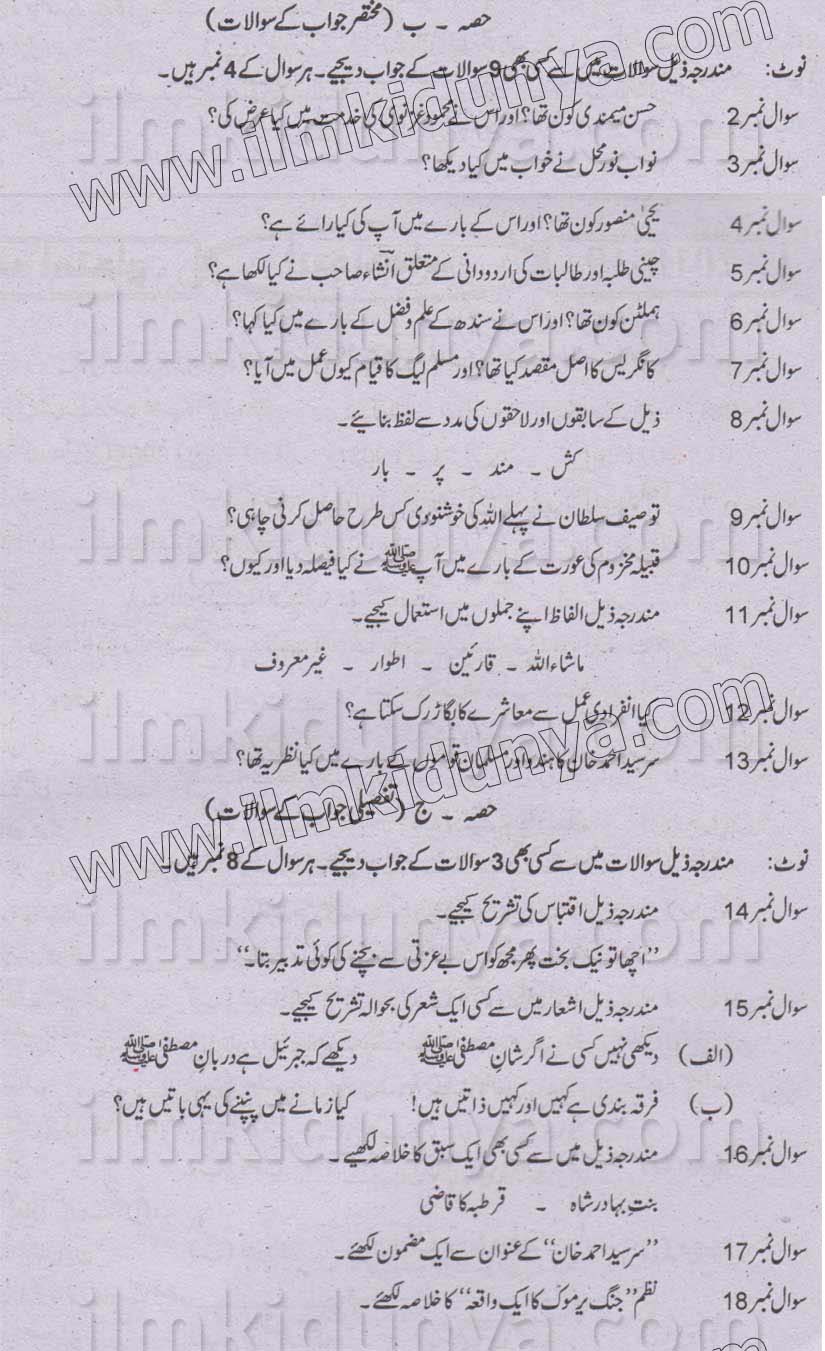 حصہ ۔ ب (مختصر جواب کے سوالات)
نوٹ: مندرجہ ذیل سوالات میں سے کسی بھی 9 سوالات کے جواب دیجیے۔ ہر سوال کے 4 نمبر ہیں۔
سوال نمبر 2 حسن میمندی کون تھا؟ اور اس نے محمود غزنوی کی خدمت میں کیا عرض کی؟
سوال نمبر 3 نواب نور محل نے خواب میں کیا دیکھا؟
سوال نمبر 4 یحییٰ منصور کون تھا؟ اور اس کے بارے میں آپ کی کیا رائے ہے؟
سوال نمبر 5 چینی طلبہ اور طالبات کی اردو دانی کے متعلق انشاء صاحب نے کیا لکھا ہے؟
سوال نمبر 6 ہملٹن کون تھا؟ اور اس نے سندھ کے علم و فضل کے بارے میں کیا کہا؟
سوال نمبر 7 کانگریس کا اصل مقصد کیا تھا؟ اور مسلم لیگ کا قیام کیوں عمل میں آیا؟
سوال نمبر 8 ذیل کے سابقوں اور لاحقوں کی مدد سے لفظ بنائیے۔
کش ۔ مند ۔ پر ۔ بار
سوال نمبر 9 توصیف سلطان نے پہلے اللہ کی خوشنودی کس طرح حاصل کرنی چاہی؟
سوال نمبر 10 قبیلہ مخزوم کی عورت کے بارے میں آپ ﷺ نے کیا فیصلہ دیا اور کیوں؟
سوال نمبر 11 مندرجہ ذیل الفاظ اپنے جملوں میں استعمال کیجیے۔
ماشاء اللہ ۔ قارئین ۔ اطوار ۔ غیر معروف
سوال نمبر 12 کیا انفرادی عمل سے معاشرے کا بگاڑ رک سکتا ہے؟
سوال نمبر 13 سرسید احمد خان کا ہندو اور مسلمان قوموں کے بارے میں کیا نظریہ تھا؟
حصہ ۔ ج (تفصیلی جواب کے سوالات)
نوٹ: مندرجہ ذیل سوالات میں سے کسی بھی 3 سوالات کے جواب دیجیے۔ ہر سوال کے 8 نمبر ہیں۔
سوال نمبر 14 مندرجہ ذیل اقتباس کی تشریح کیجیے۔
"اچھا تو نیک بخت پھر مجھ کو اس بے عزتی سے بچنے کی کوئی تدبیر بتا۔"
سوال نمبر 15 مندرجہ ذیل اشعار میں سے کسی ایک شعر کی بحوالہ تشریح کیجیے۔
(الف) دیکھی نہیں کسی نے اگر شانِ مصطفیٰ ﷺ دیکھے کہ جبرئیل ہے دربانِ مصطفیٰ ﷺ
(ب) فرقہ بندی ہے کہیں اور کہیں ذاتیں ہیں! کیا زمانے میں پنپنے کی یہی باتیں ہیں؟
سوال نمبر 16 مندرجہ ذیل میں سے کسی بھی ایک سبق کا خلاصہ لکھیے۔
بنتِ بہادر شاہ ۔ قرطبہ کا قاضی
سوال نمبر 17 "سرسید احمد خان" کے عنوان سے ایک مضمون لکھئے۔
سوال نمبر 18 نظم "جنگ یرموک کا ایک واقعہ" کا خلاصہ لکھئے۔
www.ilmkidunya.com
www.ilmkidunya.com
ilmkidunya.com
ilmkidunya.com
ilmkidunya.com
ilmkidunya.com
ilmkidunya.com
ilmkidunya.com
ilmkidunya.com